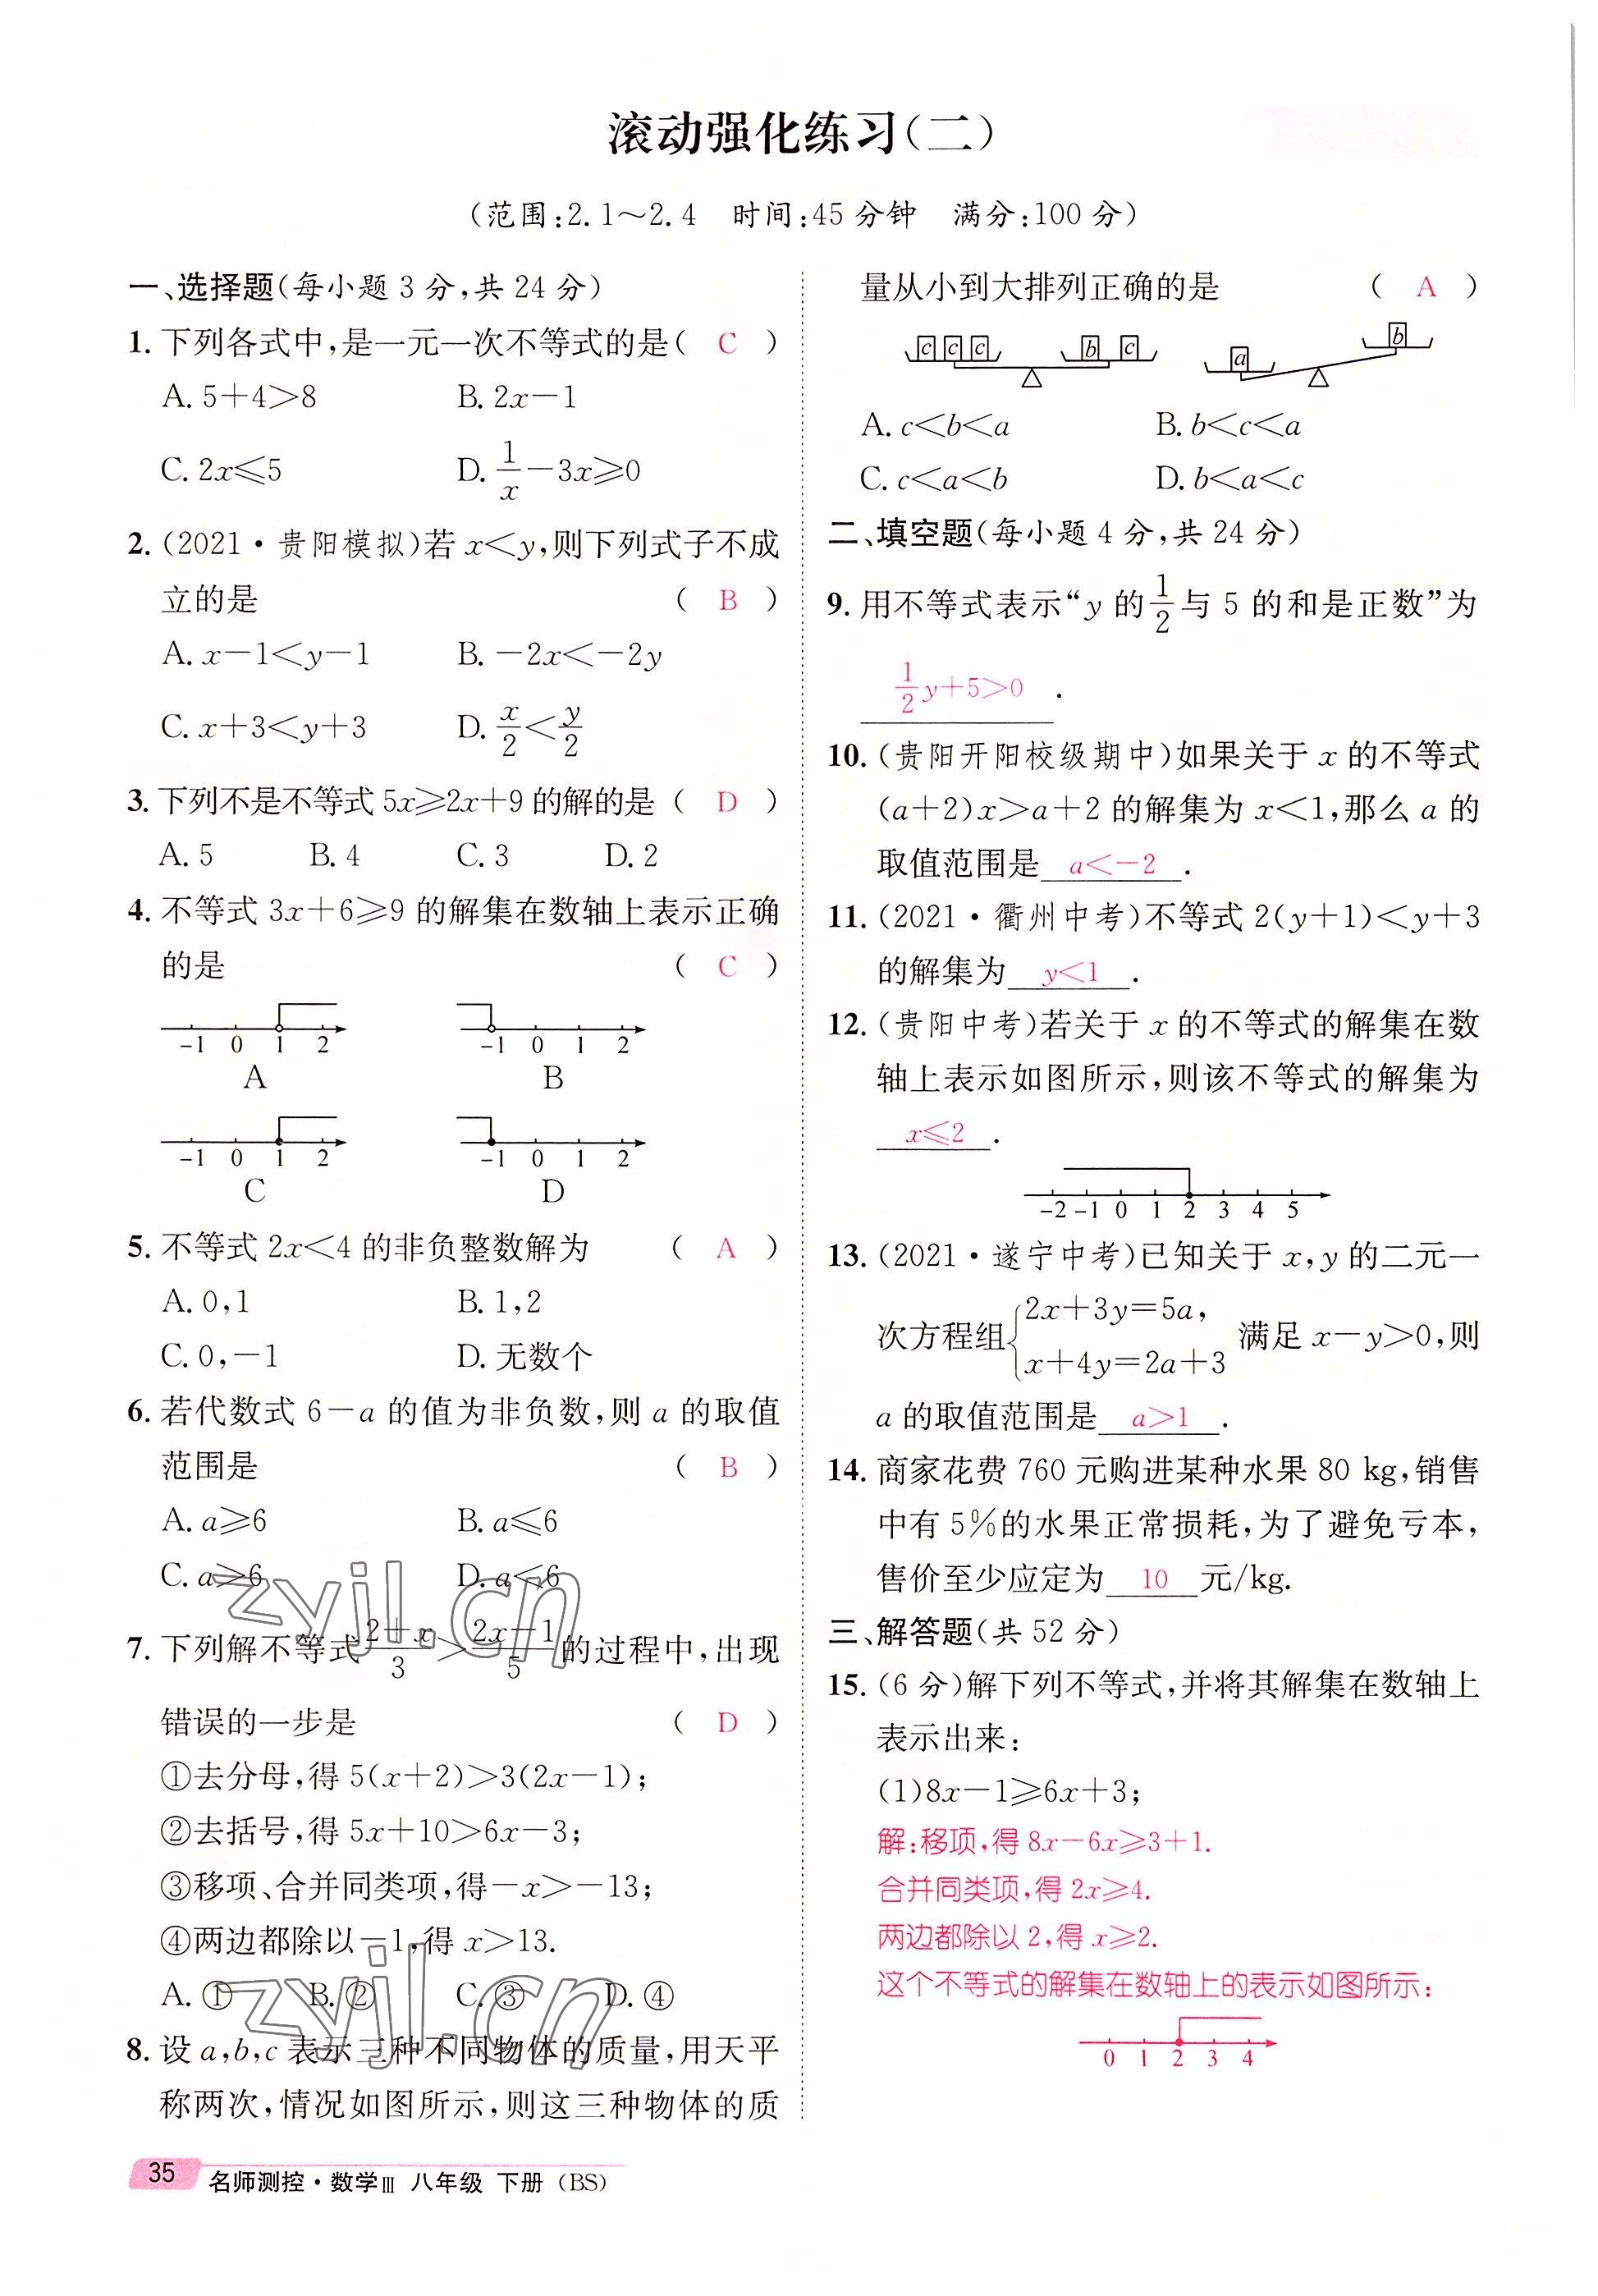 滚动强化练习(二)
(范围:2.1～2.4 时间:45分钟 满分:100分)
一、选择题(每小题3分,共24分)
1. 下列各式中,是一元一次不等式的是( C )
A. 5+4>8 B. 2x-1
C. 2x⩽5 D. 1/x-3x⩾0
2. (2021·贵阳模拟)若x<y,则下列式子不成
立的是 ( B )
A. x-1<y-1 B. -2x<-2y
C. x+3<y+3 D. x/2<y/2
3. 下列不是不等式5x⩾2x+9的解的是( D )
A. 5 B. 4 C. 3 D. 2
4. 不等式3x+6⩾9的解集在数轴上表示正确
的是 ( C )
-1 0 1 2 -1 0 1 2
A B
-1 0 1 2 -1 0 1 2
C D
5. 不等式2x<4的非负整数解为 ( A )
A. 0,1 B. 1,2
C. 0,-1 D. 无数个
6. 若代数式6-a的值为非负数,则a的取值
范围是 ( B )
A. a⩾6 B. a⩽6
C. a>6 D. a<6
7. 下列解不等式(2+x)/3>(2x-1)/5的过程中,出现
错误的一步是 ( D )
①去分母,得5(x+2)>3(2x-1);
②去括号,得5x+10>6x-3;
③移项、合并同类项,得-x>-13;
④两边都除以-1,得x>13.
A. ① B. ② C. ③ D. ④
8. 设a,b,c表示三种不同物体的质量,用天平
称两次,情况如图所示,则这三种物体的质
量从小到大排列正确的是 ( A )
c c c b c a b
A. c<b<a B. b<c<a
C. c<a<b D. b<a<c
二、填空题(每小题4分,共24分)
9. 用不等式表示“y的1/2与5的和是正数”为
1/2y+5>0.
10. (贵阳开阳校级期中)如果关于x的不等式
(a+2)x>a+2的解集为x<1,那么a的
取值范围是 a<-2.
11. (2021·衢州中考)不等式2(y+1)<y+3
的解集为 y<1.
12. (贵阳中考)若关于x的不等式的解集在数
轴上表示如图所示,则该不等式的解集为
x⩽2.
-2 -1 0 1 2 3 4 5
13. (2021·遂宁中考)已知关于x,y的二元一
次方程组{2x+3y=5a, x+4y=2a+3 满足x-y>0,则
a的取值范围是 a>1.
14. 商家花费760元购进某种水果80 kg,销售
中有5%的水果正常损耗,为了避免亏本,
售价至少应定为 10 元/kg.
三、解答题(共52分)
15. (6分)解下列不等式,并将其解集在数轴上
表示出来:
(1)8x-1⩾6x+3;
解:移项,得8x-6x⩾3+1.
合并同类项,得2x⩾4.
两边都除以2,得x⩾2.
这个不等式的解集在数轴上的表示如图所示:
0 1 2 3 4
35 名师测控·数学Ⅲ 八年级 下册 (BS)
zyjl.cn
zyjl.cn